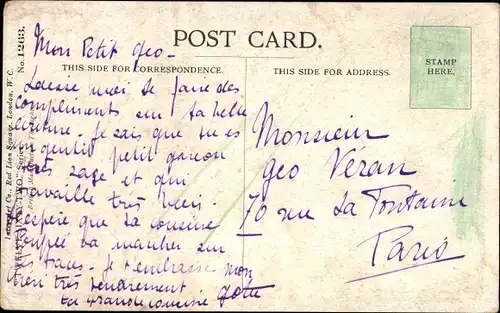 POST CARD.
THIS SIDE FOR CORRESPONDENCE.
THIS SIDE FOR ADDRESS.
STAMP
HERE.
No. 1263.
Inter-Art Co., Red Lion Square, London, W.C.
Mon Petit Geo -
Laisse moi te faire des
compliments sur ta belle
écriture. Je sais que tu es
un gentil petit garçon
très sage et qui
travaille très bien.
J'espère que la cousine
poupée va marcher sur
tes - Je t'embrasse mon
très tendrement
ta grande cousine
Monsieur
Geo Véran
70 rue La Fontaine
Paris